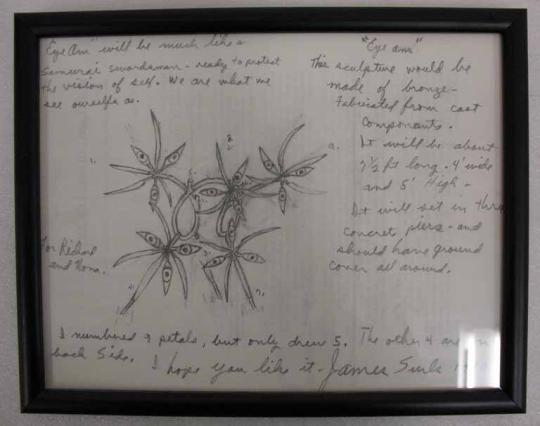 "Eye Am" will be much like a
Samurai swordsman - ready to protect
the vision of self. We are what we
see ourselfs as.
"Eye am"
This sculpture would be
made of bronze-
Fabricated from cast
Components.
It will be about
7½ ft long. 4' wide
and 5' High -
It will set in
concret piers - and
should have ground
cover all around.
1.
8.
9.
7.
For Richard
and Nona.
I numbered 9 petals, but only drew 5. The other 4 are on
back side. I hope you like it - James Surls